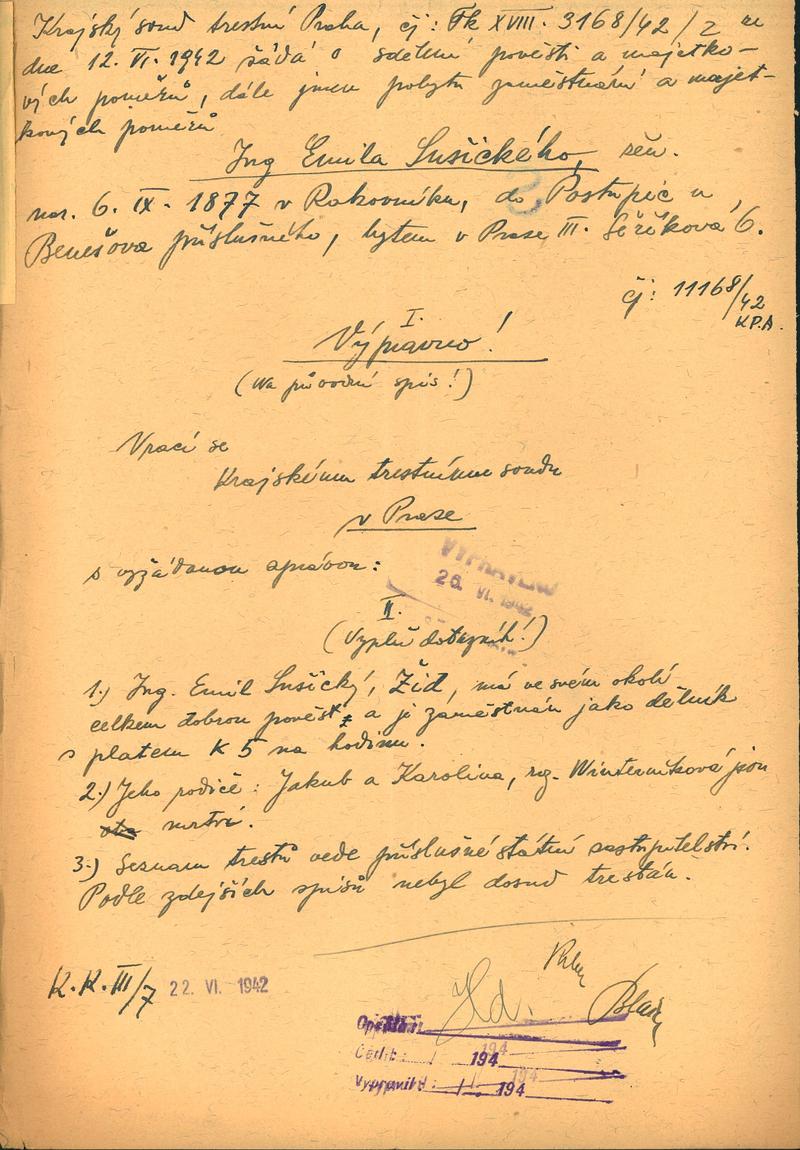 Krajský soud trestní Praha, čj: Tk XVIII. 3168/42/2 ze
dne 12. VI. 1942 žádá o sdělení pověsti a majetko-
vých poměrů, dále jmen pobytu zaměstnání a majet-
kových poměrů
Ing Emila Sušického, sen.
nar. 6. IX. 1877 v Rakovníku, do Postupic u
Benešova příslušného, bytem v Praze III. Šeříková 6.
čj: 11168/42
K.P.A.
I.
Výpravno!
(Na původní spis!)
Vrací se
Krajskému trestnímu soudu
v Praze
s vyžádanou zprávou:
VYPRAVENO
26. VI. 1942
II.
(Vyplň dotazník!)
1.) Ing. Emil Sušický, Žid, má ve svém okolí
celkem dobrou pověst a je zaměstnán jako dělník
s platem K 5 na hodinu.
2.) Jeho rodiče: Jakub a Karolina, roz. Winterniková jsou
oba mrtvi.
3.) Seznam trestů vede příslušné státní zastupitelství.
Podle zdejších spisů nebyl dosud trestán.
K.K. III/7 22. VI. 1942
Opsal:
Četl: 194
Vypravil: 194